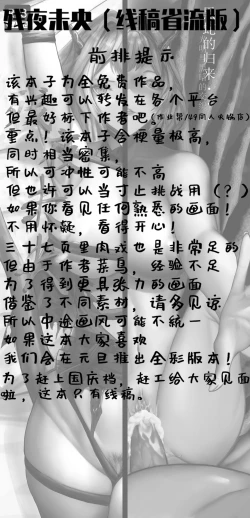 残夜未央（线稿省流版）
前排提示
该本子为全免费作品，
有兴趣可以转发在各个平台
但最好标下作者吧。
重点！该本子含梗量极高，
同时相当密集，
所以可冲性可能不高
但也许可以当寸止挑战用（？）
如果你看见任何熟悉的画面！
不用怀疑，看得开心！
三十七页里肉戏也是非常足的
但由于作者菜鸟，经验不足
为了得到更具张力的画面
借鉴了不同素材，请多见谅
所以中途画风可能不统一
如果这本大家喜欢
我们会在元旦推出全彩版本！
为了赶上国庆档，赶工给大家见面
啦，这本只有线稿。
的归来